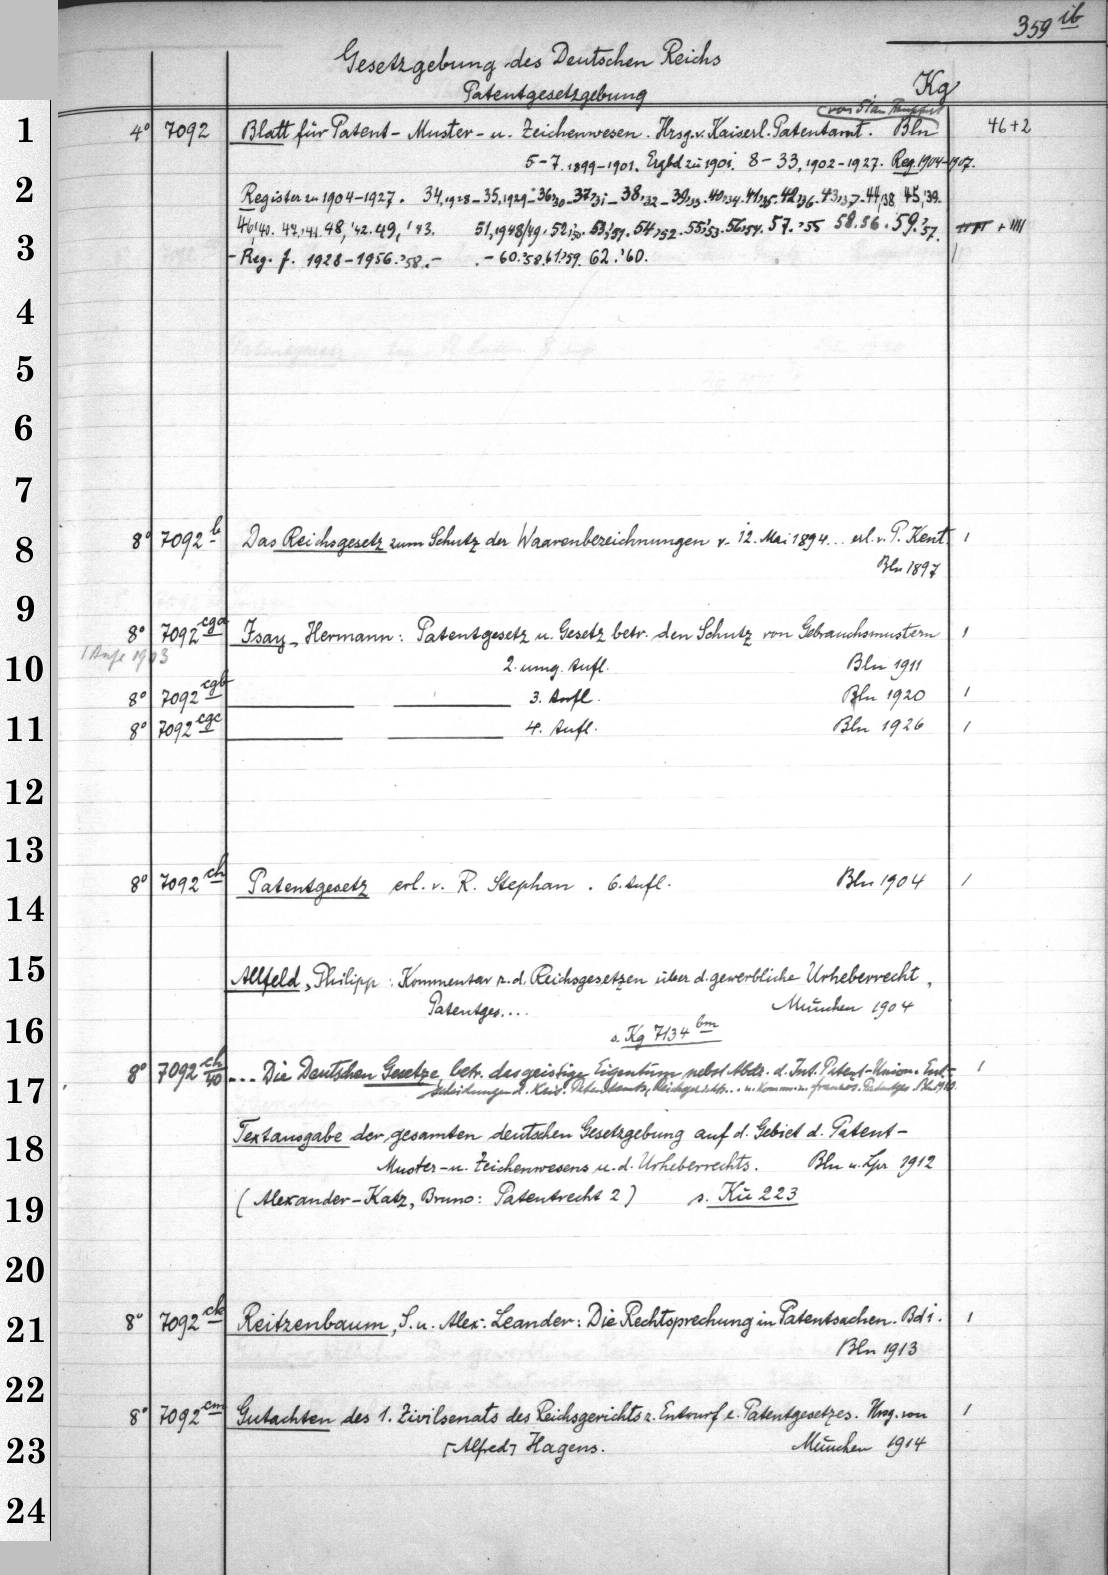 359 ib
Gesetzgebung des Deutschen Reichs
Patentgesetzgebung Kg
1 4° 7092 Blatt für Patent- Muster- u. Zeichenwesen. Hrsg. v. Kaiserl. Patentamt. Bln 46+2
5-7. 1899-1901. Ergbd zu 1901. 8-33, 1902-1927. Reg. 1904-1907.
2 Register zu 1904-1927. 34, 1928-35, 1929-36,'30-37,'31-38,'32-39,'33-40,'34-41,'35-42,'36-43,'37-44,'38 45,'39.
46,'40. 47,'41. 48,'42. 49,'43. 51, 1948/49. 52,'50. 53,'51. 54,'52. 55,'53. 56,'54. 57.'55 58.56. 59.'57. + IIII
3 - Reg. f. 1928-1956.'58.- .-60.'58. 61.'59. 62.'60.
4
5
6
7
8 8° 7092 b Das Reichsgesetz zum Schutz der Waarenbezeichnungen v. 12. Mai 1894... erl. v. P. Kent. 1
Bln 1897
9 8° 7092 cga Isay, Hermann: Patentgesetz u. Gesetz betr. den Schutz von Gebrauchsmustern 1
1 Aufl 1903
10 2. umg. Aufl. Bln 1911
8° 7092 cgb 3. Aufl. Bln 1920 1
11 8° 7092 cgc 4. Aufl. Bln 1926 1
12
13
14 8° 7092 ch Patentgesetz erl. v. R. Stephan. 6. Aufl. Bln 1904 1
15 Allfeld, Philipp: Kommentar z. d. Reichsgesetzen über d. gewerbliche Urheberrecht,
Patentges.... München 1904
16 s. Kg 7134 bm
17 8° 7092 ch/40 ... Die Deutschen Gesetze betr. das geistige Eigentum nebst Abdr. d. Int. Patent-Union. Ent- 1
scheidungen d. Kais. Patentamts, Reichsgerichts... u. Komm. z. französ. Patentges.
18 Textausgabe der gesamten deutschen Gesetzgebung auf d. Gebiet d. Patent-
Muster- u. Zeichenwesens u. d. Urheberrechts. Bln u. Lpz 1912
19 (Alexander-Katz, Bruno: Patentrecht 2) s. Kü 223
20
21 8° 7092 ck Reitzenbaum, S. u. Alex. Leander: Die Rechtsprechung in Patentsachen. Bd 1. 1
Bln 1913
22
8° 7092 cm Gutachten des 1. Zivilsenats des Reichsgerichts z. Entwurf e. Patentgesetzes. Hrsg. von 1
23 [Alfred] Hagens. München 1914
24